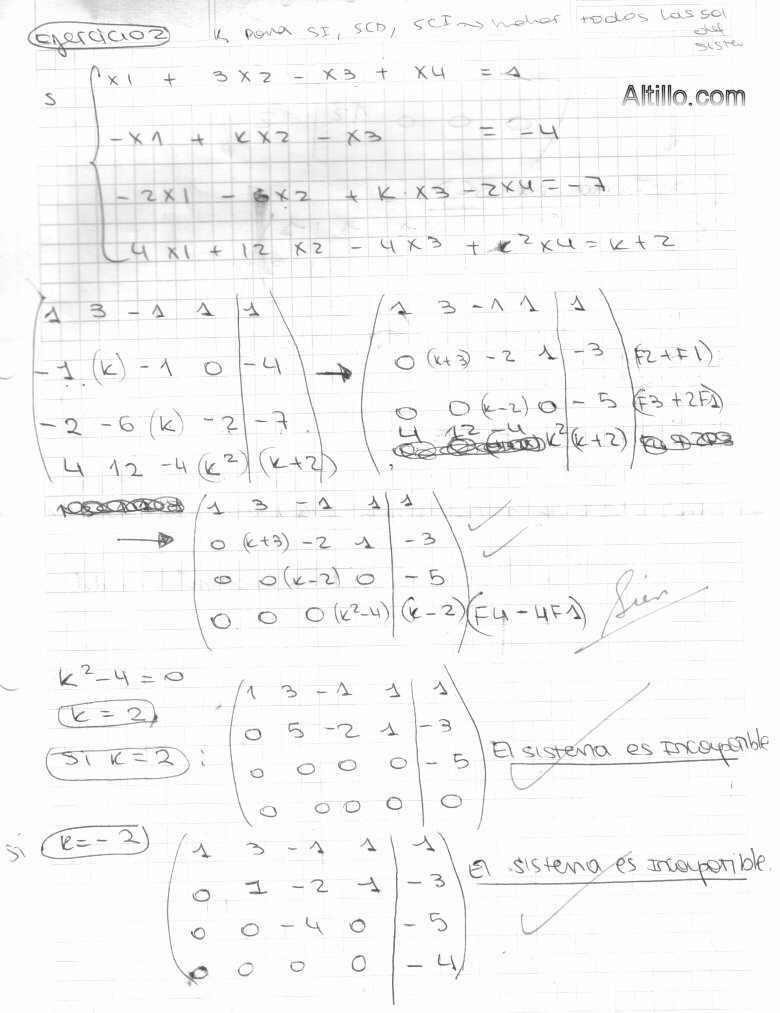 Ejercicio 2 K, para SI, SCD, SCI ~> hallar todos las sol
del
siste
Altillo.com
S { x1 + 3x2 - x3 + x4 = 1
-x1 + Kx2 - x3 = -4
-2x1 - 6x2 + K x3 - 2x4 = -7
4x1 + 12 x2 - 4x3 + K²x4 = K+2
1 3 -1 1 | 1
-1 (K) -1 0 | -4
-2 -6 (K) -2 | -7
4 12 -4 (K²) | (K+2)
→
1 3 -1 1 | 1
0 (K+3) -2 1 | -3 (F2+F1)
0 0 (K-2) 0 | -5 (F3+2F1)
4 12 -4 K² | (K+2)
→
1 3 -1 1 | 1
0 (K+3) -2 1 | -3
0 0 (K-2) 0 | -5
0 0 0 (K²-4) | (K-2) (F4-4F1)
Bien
K²-4=0
K=2
Si K=2 :
1 3 -1 1 | 1
0 5 -2 1 | -3
0 0 0 0 | -5
0 0 0 0 | 0
El sistema es Incompatible
Si K=-2
1 3 -1 1 | 1
0 1 -2 1 | -3
0 0 -4 0 | -5
0 0 0 0 | -4
El sistema es Incompatible.